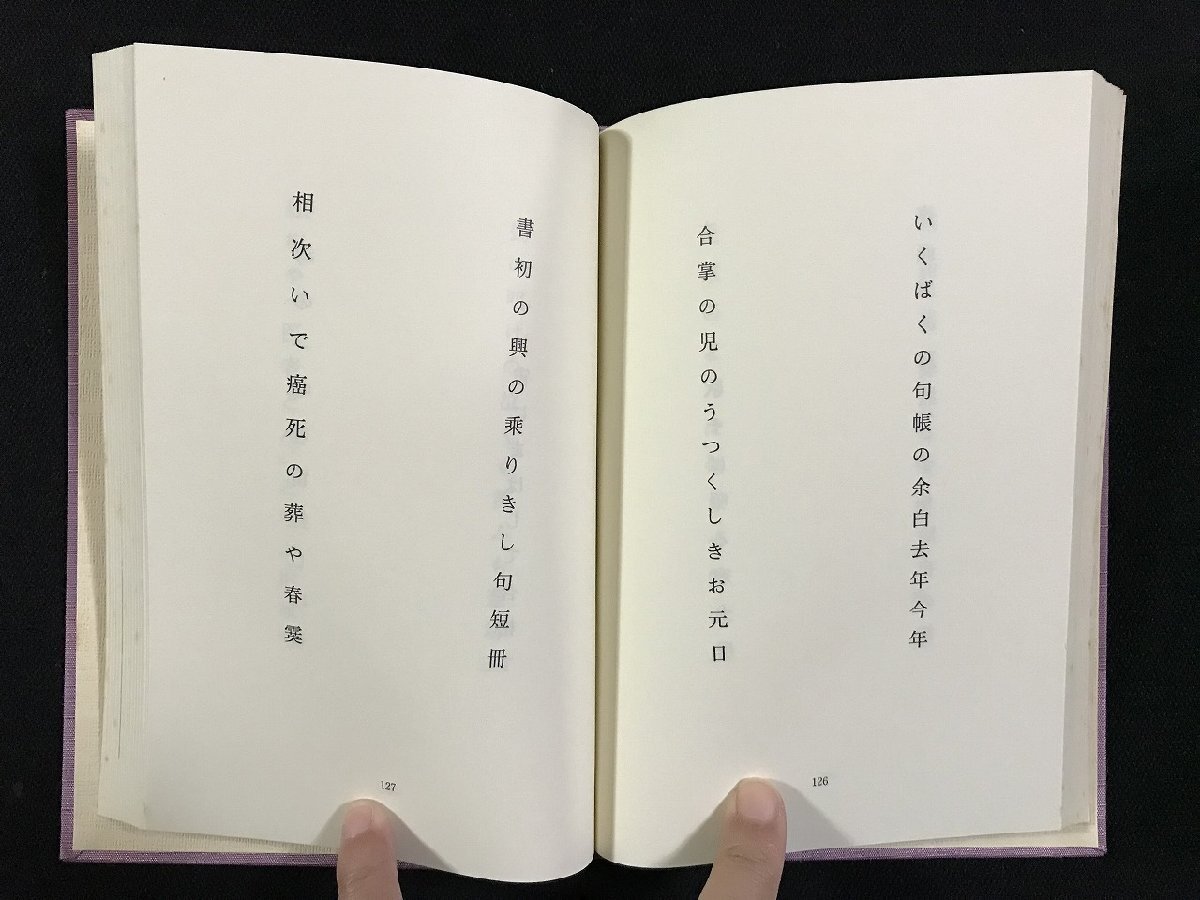 いくばくの句帳の余白去年今年
合掌の児のうつくしきお元日
126
書初の興の乗りきし句短冊
相次いで癌死の葬や春霙
127